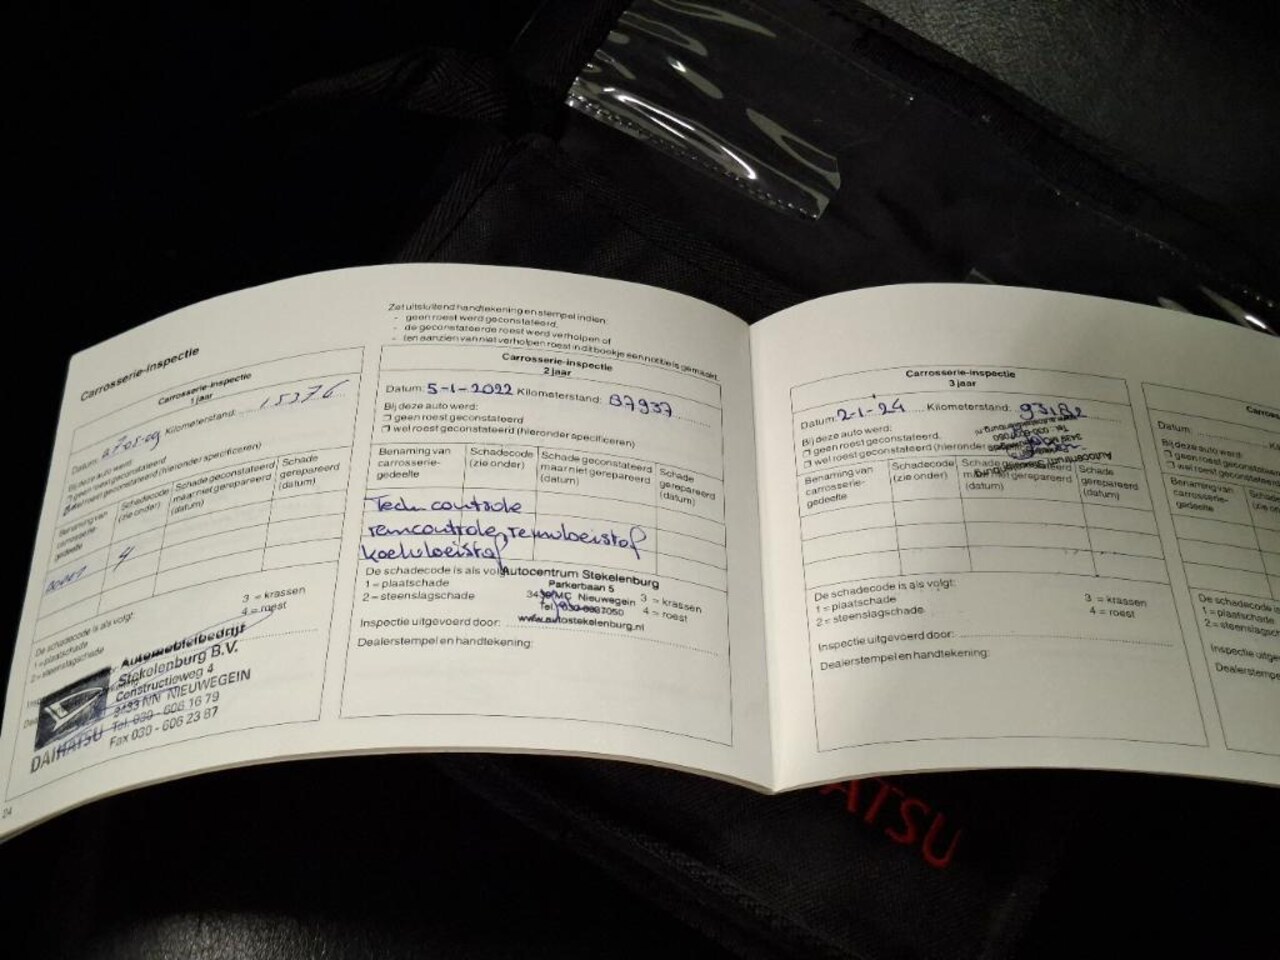 Carrosserie-inspectie
Carrosserie-inspectie
1 jaar
Datum: Kilometerstand: 15376
Bij deze auto werd:
geen roest geconstateerd
wel roest geconstateerd (hieronder specificeren)
Benaming van carrosserie-gedeelte
Schadecode (zie onder)
Schade geconstateerd maar niet gerepareerd (datum)
Schade gerepareerd (datum)
4
De schadecode is als volgt:
1 = plaatschade
2 = steenslagschade
3 = krassen
4 = roest
Automobielbedrijf
Stekelenburg B.V.
Constructieweg 4
3433 NN NIEUWEGEIN
Tel. 030 - 606 16 79
Fax 030 - 606 23 87
DAIHATSU
24
Zet uitsluitend handtekening en stempel indien:
- geen roest werd geconstateerd,
- de geconstateerde roest werd verholpen of
- ten aanzien van niet verholpen roest in dit boekje een notitie is gemaakt.
Carrosserie-inspectie
2 jaar
Datum: 5-1-2022 Kilometerstand: 87937
Bij deze auto werd:
geen roest geconstateerd
wel roest geconstateerd (hieronder specificeren)
Benaming van carrosserie-gedeelte
Schadecode (zie onder)
Schade geconstateerd maar niet gerepareerd (datum)
Schade gerepareerd (datum)
Tech controle
remcontrole, remvloeistof
koelvloeistof
De schadecode is als volgt:
1 = plaatschade
2 = steenslagschade
3 = krassen
4 = roest
Autocentrum Stekelenburg
Parkerbaan 5
3439 MC Nieuwegein
www.autostekelenburg.nl
Inspectie uitgevoerd door:
Dealerstempel en handtekening:
Carrosserie-inspectie
3 jaar
Datum: 2-1-24 Kilometerstand: 93182
Bij deze auto werd:
geen roest geconstateerd
wel roest geconstateerd (hieronder
Autocentrum Stekelenburg
Benaming van carrosserie-gedeelte
Schadecode (zie onder)
Schade geconstateerd maar niet gerepareerd (datum)
Schade gerepareerd (datum)
De schadecode is als volgt:
1 = plaatschade
2 = steenslagschade
3 = krassen
4 = roest
Inspectie uitgevoerd door:
Dealerstempel en handtekening:
Datum:
Bij deze auto werd:
geen roest geconstateerd
wel roest geconstateerd
Benaming van carrosserie-gedeelte
De schadecode is
1 = plaatschade
2 = steenslagsc
Inspectie uitge
Dealerstempe
ATSU